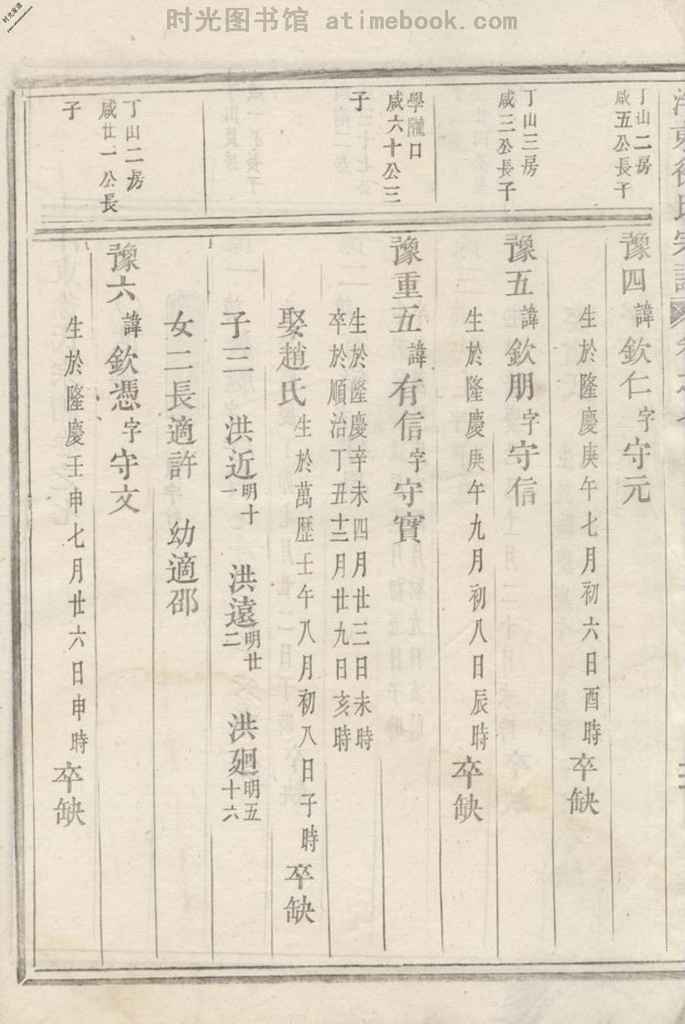 时光图书馆 atimebook.com
丁山二房
咸五公長子
豫四 諱欽仁 字守元
生於隆慶庚午七月初六日酉時 卒缺
丁山三房
咸三公長子
豫五 諱欽朋 字守信
生於隆慶庚午九月初八日辰時 卒缺
學隴口
咸六十公三
子
豫重五 諱有信 字守實
生於隆慶辛未四月廿三日未時
卒於順治丁丑十二月廿九日亥時
娶趙氏 生於萬歷壬午八月初八日子時 卒缺
子三 洪近 明十一 洪遠 明廿二 洪廻 明五十六
女二長適許 幼適邵
丁山二房
咸廿一公長
子
豫六 諱欽憑 字守文
生於隆慶壬申七月廿六日申時 卒缺